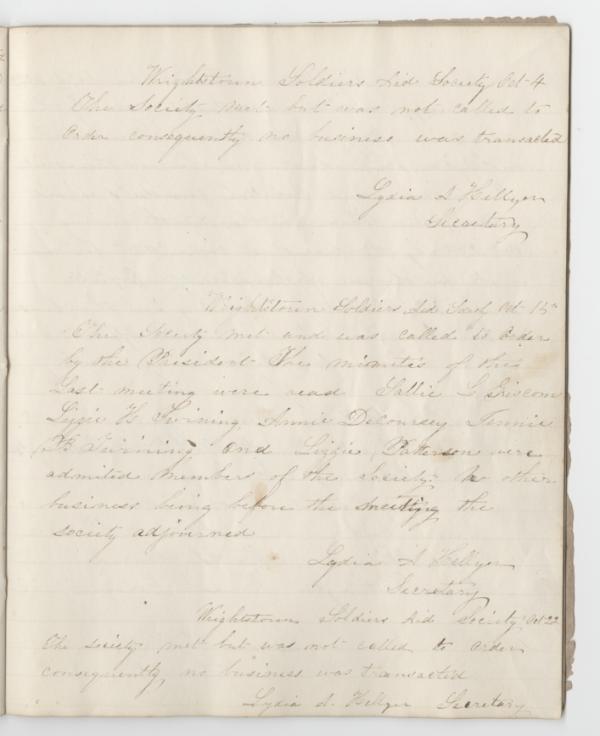 Wrightstown Soldiers Aid Society Oct 4
The Society met but was not called to
Order consequently no business was transacted
Lydia A Hellyer
Secretary
Wrightstown Soldiers Aid Oct 15
The Society met and was called to order
by the President The minutes of the
Last meeting were read Sallie G Liscom
Lizzie H Twining Annie DeCoursey Jennie
B Twining and Lizzie Patterson were
admited members of the Society No other
business being before the meeting the
society adjourned
Lydia A Hellyer
Secretary
Wrightstown Soldiers Aid Society Oct 22
The society met but was not called to order
consequently, no business was transacted
Lydia A. Hellyer Secretary